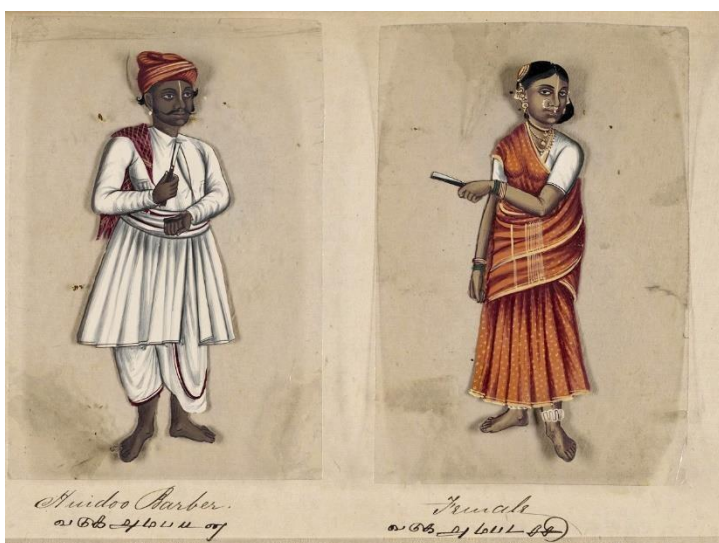 Hindoo Barber.
வடுக அமபடடன
Female
வடுக அமபடடசசி